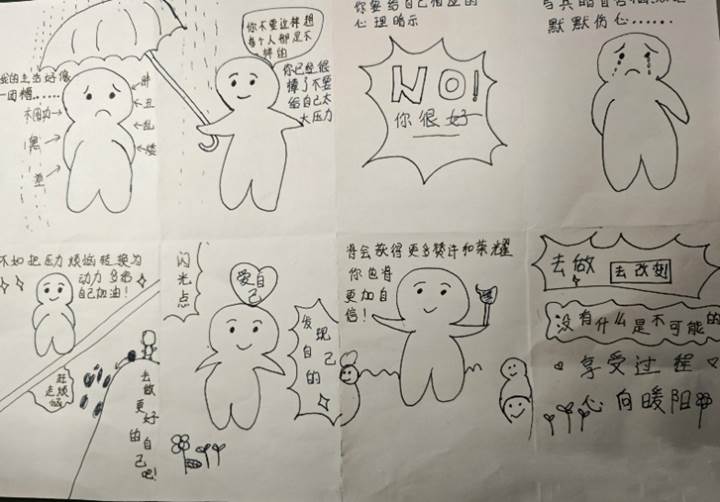 我的生活好像
一团糟……
不用功
黑
胖
丑
乱
矮
你不要这样想
每个人都是不
一样的
你已经很
棒了不要
给自己太
大压力
你要给自己相应的
心理暗示
NO!
你很好
默默伤心……
不如把压力烦恼转换为
动力多给
自己加油!
赶走烦恼
去做更好的自己吧!
闪光点
爱自己
发现自己的
将会获得更多赞许和荣耀
你也得
更加自
信!
去做
去改变
没有什么是不可能的
享受过程
心向暖阳